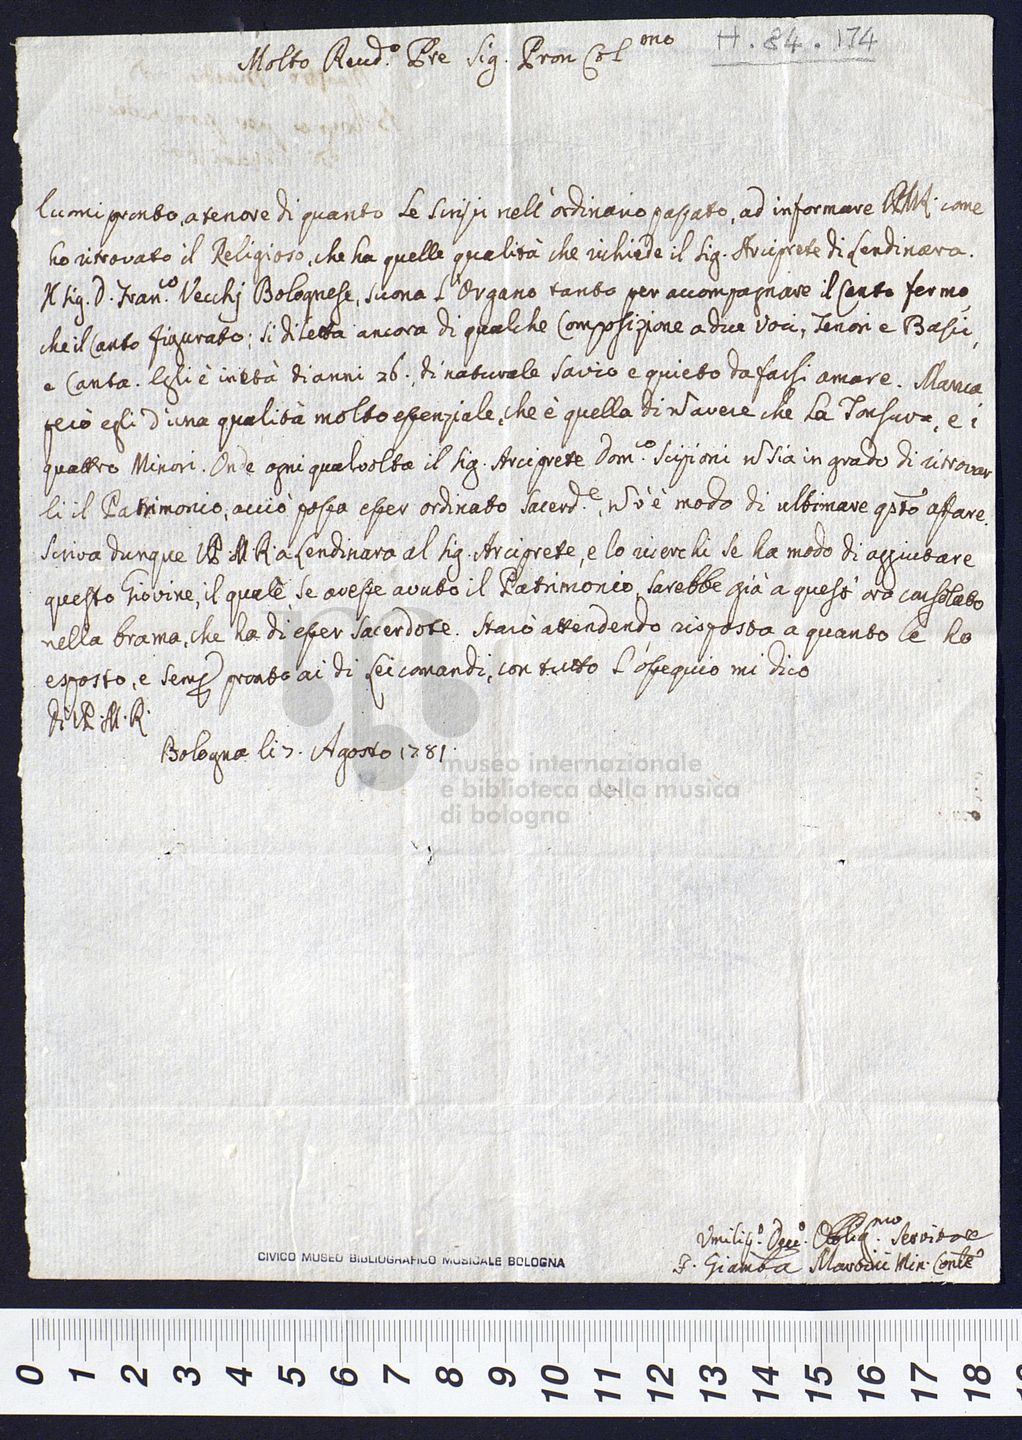 H. 84. 174
Molto Revd.o Pre Sig. Pron Col.mo
Eccomi pronto, a tenore di quanto Le scrissi nell'ordinario passato, ad informare V.P.M.R. come
ho ritrovato il Religioso, che ha quelle qualità che richiede il Sig. Arciprete di Lendinara.
Il Sig. D. Fran.co Vecchj Bolognese, suona l'Organo tanto per accompagnare il Canto fermo,
che il Canto figurato; si diletta ancora di qualche Composizione a due Voci, Tenori e Bassi,
e Canta. Egli è in età di anni 26., di naturale savio e quieto da farsi amare. Manca
però egli d'una qualità molto essenziale, che è quella di ñ avere che la Tonsura, e i
quattro Minori. Onde ogni qualvolta il Sig. Arciprete Dom.co Scipioni ñ sia in grado di ritrovar
li il Patrimonio, acciò possa esser ordinato Sacerd.e, ñ v'è modo di ultimare qsto affare.
Scriva dunque V.P.M.R. a Lendinara al Sig. Arciprete, e lo ricerchi se ha modo di aggiutare
questo Giovine, il quale se avesse avuto il Patrimonio, sarebbe già a quest' ora consolato
nella brama, che ha di esser Sacerdote. Starò attendendo risposta a quanto le ho
esposto, e semp pronto ai di Lei comandi, con tutto l'ossequio mi dico
Di V.P.M.R.
Bologna li 7. Agosto 1781.
museo internazionale
e biblioteca della musica
di bologna
Umiliss.o Dev.o Obblig.mo Servitore
F. Giamba Martini Min. Conle
CIVICO MUSEO BIBLIOGRAFICO MUSICALE BOLOGNA
0 1 2 3 4 5 6 7 8 9 10 11 12 13 14 15 16 17 18